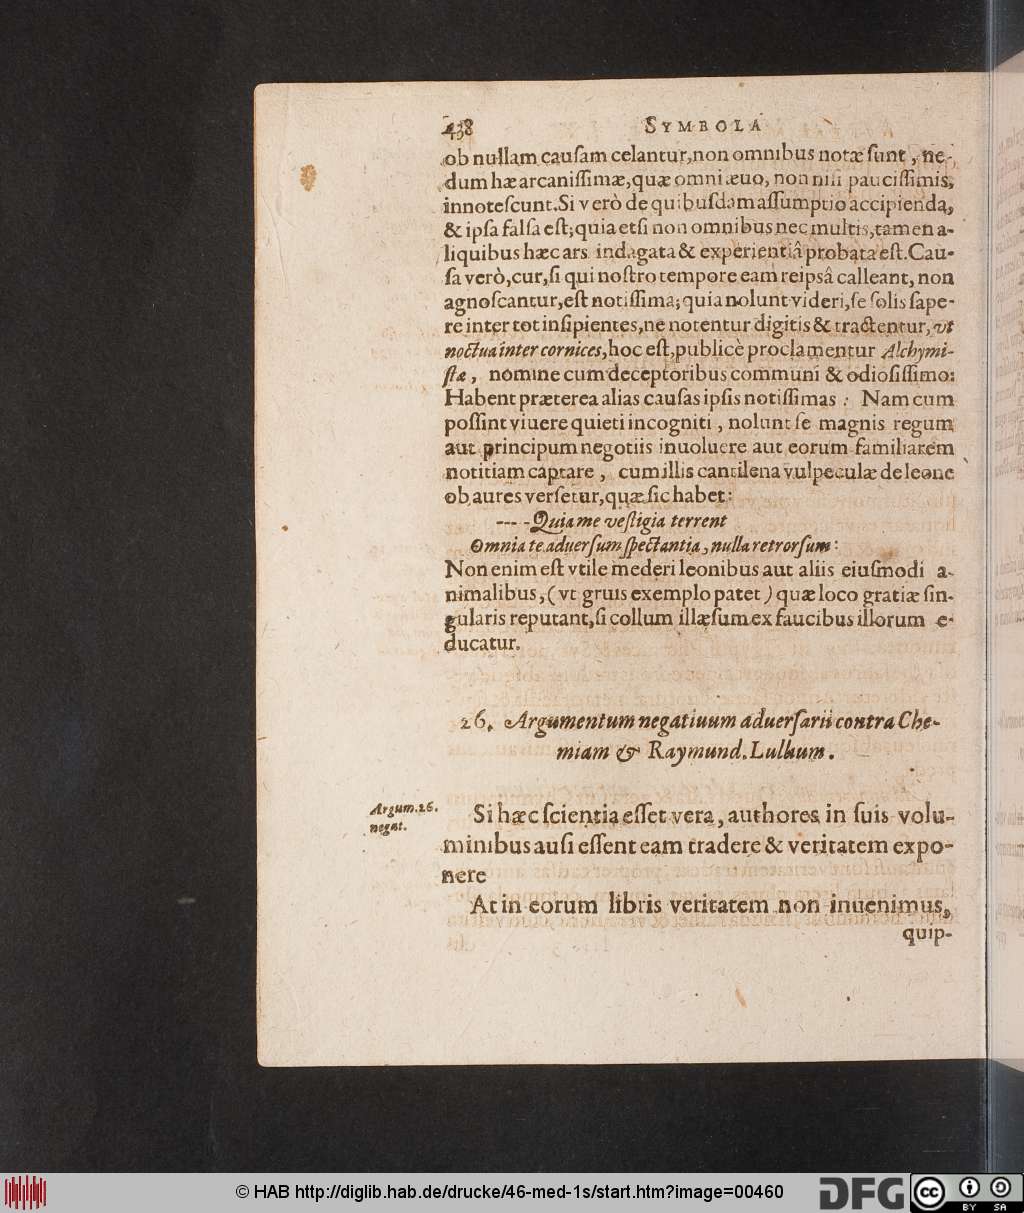 438 SYMBOLA
ob nullam cauſam celantur,non omnibus notæ ſunt , ne-
dum hæ arcaniſſimæ,quæ omni æuo, non niſi pauciſſimis,
innoteſcunt.Si verò de quibuſdam aſſumptio accipienda,
& ipſa falſa eſt;quia etſi non omnibus nec multis,tamen a-
liquibus hæc ars indagata & experientiâ probata eſt.Cau-
ſa verò,cur,ſi qui noſtro tempore eam reipsâ calleant, non
agnoſcantur,eſt notiſſima;quia nolunt videri,ſe ſolis ſape-
re inter tot inſipientes,ne notentur digitis & tractentur,vt
noctua inter cornices,hoc eſt,publicè proclamentur Alchymi-
ſtæ, nomine cum deceptoribus communi & odioſiſſimo:
Habent præterea alias cauſas ipſis notiſſimas : Nam cum
poſſint viuere quieti incogniti , nolunt ſe magnis regum
aut principum negotiis inuoluere aut eorum familiarem
notitiam captare , cum illis cantilena vulpeculæ de leone
ob aures verſetur,quæ ſic habet:
--- -Quia me veſtigia terrent
Omnia te aduerſum ſpectantia, nulla retrorſum:
Non enim eſt vtile mederi leonibus aut aliis eiuſmodi a-
nimalibus,(vt gruis exemplo patet) quæ loco gratiæ ſin-
gularis reputant,ſi collum illæſum ex faucibus illorum e-
ducatur.
26. Argumentum negatiuum aduerſarii contra Che-
miam & Raymund. Lullium.
Argum.26.
negat.
Si hæc ſcientia eſſet vera, authores in ſuis volu-
minibus auſi eſſent eam tradere & veritatem expo-
nere
At in eorum libris veritatem non inuenimus,
quip-
© HAB http://diglib.hab.de/drucke/46-med-1s/start.htm?image=00460
DFG
cc BY SA